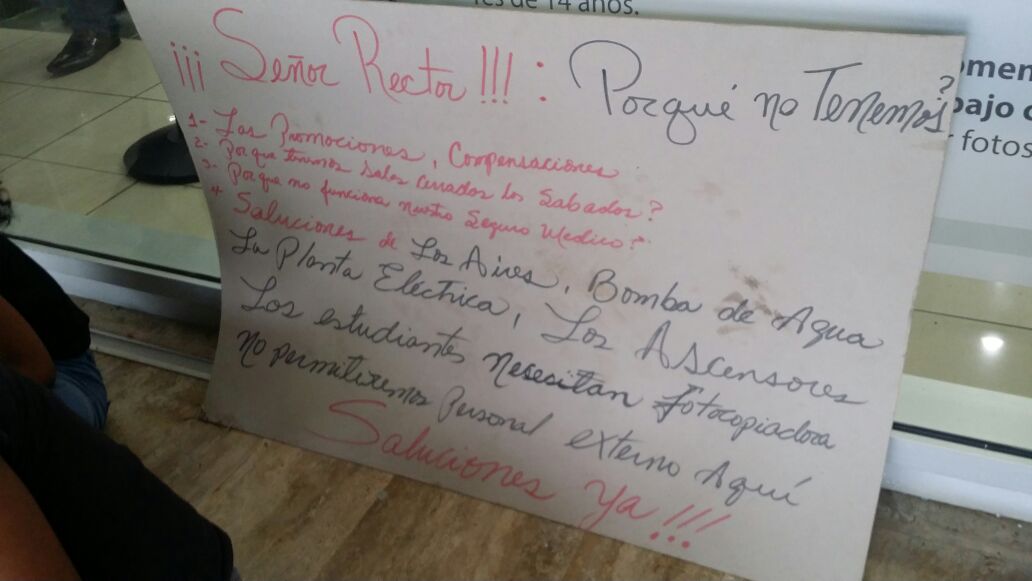 res de 14 años.
¡¡¡ Señor Rector!!! : Porqué no Tenemos?
1- Las Promociones, Compensaciones
2- Por que tenemos sales cerrados los Sabados?
3- Por que no funciona nuestro Seguro Medico?
4 Saluciones de Los Aires, Bomba de Agua
La Planta Electrica, Los Ascensores
Los estudiantes Necesitan Fotocopiadora
No permitiremos Personal externo Aquí
Saluciones Ya!!!
omen
bajo
fotos